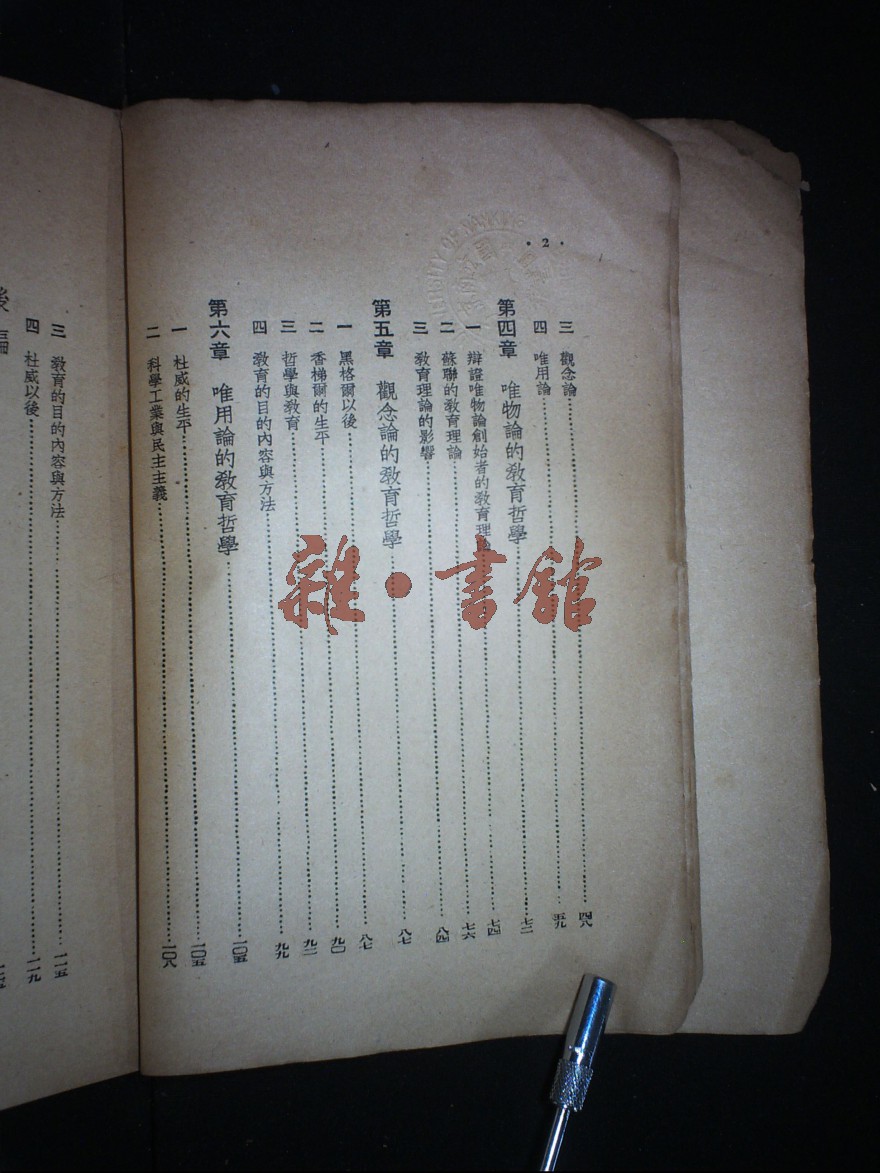 ·2·
三 觀念論 四八
四 唯用論 五九
第四章 唯物論的教育哲學 七二
一 辯證唯物論創始者的教育理 七四
二 蘇聯的教育理論 七六
三 教育理論的影響 八四
第五章 觀念論的教育哲學 八七
一 黑格爾以後 八七
二 香梯爾的生平 九〇
三 哲學與教育 九二
四 教育的目的內容與方法 九九
第六章 唯用論的教育哲學 一〇五
一 杜威的生平 一〇五
二 科學工業與民主主義 一〇八
三 教育的目的內容與方法 一一五
四 杜威以後 一一九
雜·書館
OF NANKING